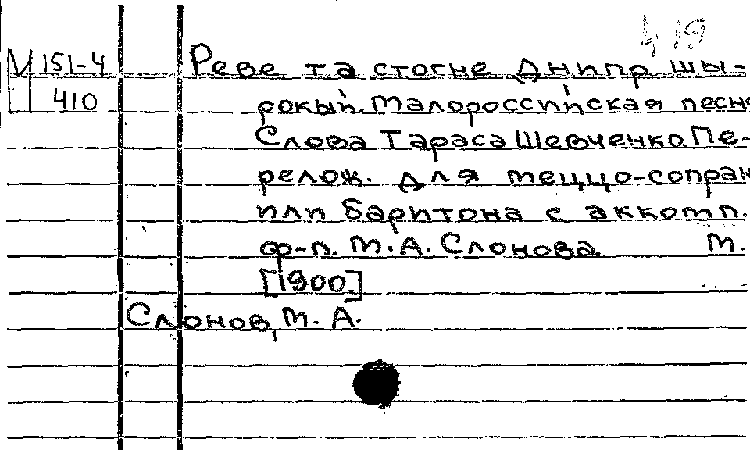 419
М 151-4
410
Реве та стогне Днипр шы-
рокый. Малороссийская песня
Слова Тараса Шевченко. Пе-
релож. для меццо-сопран
или баритона с аккомп.
ф-п. М.А. Слонова. М.
[1900]
Слонов, М. А.